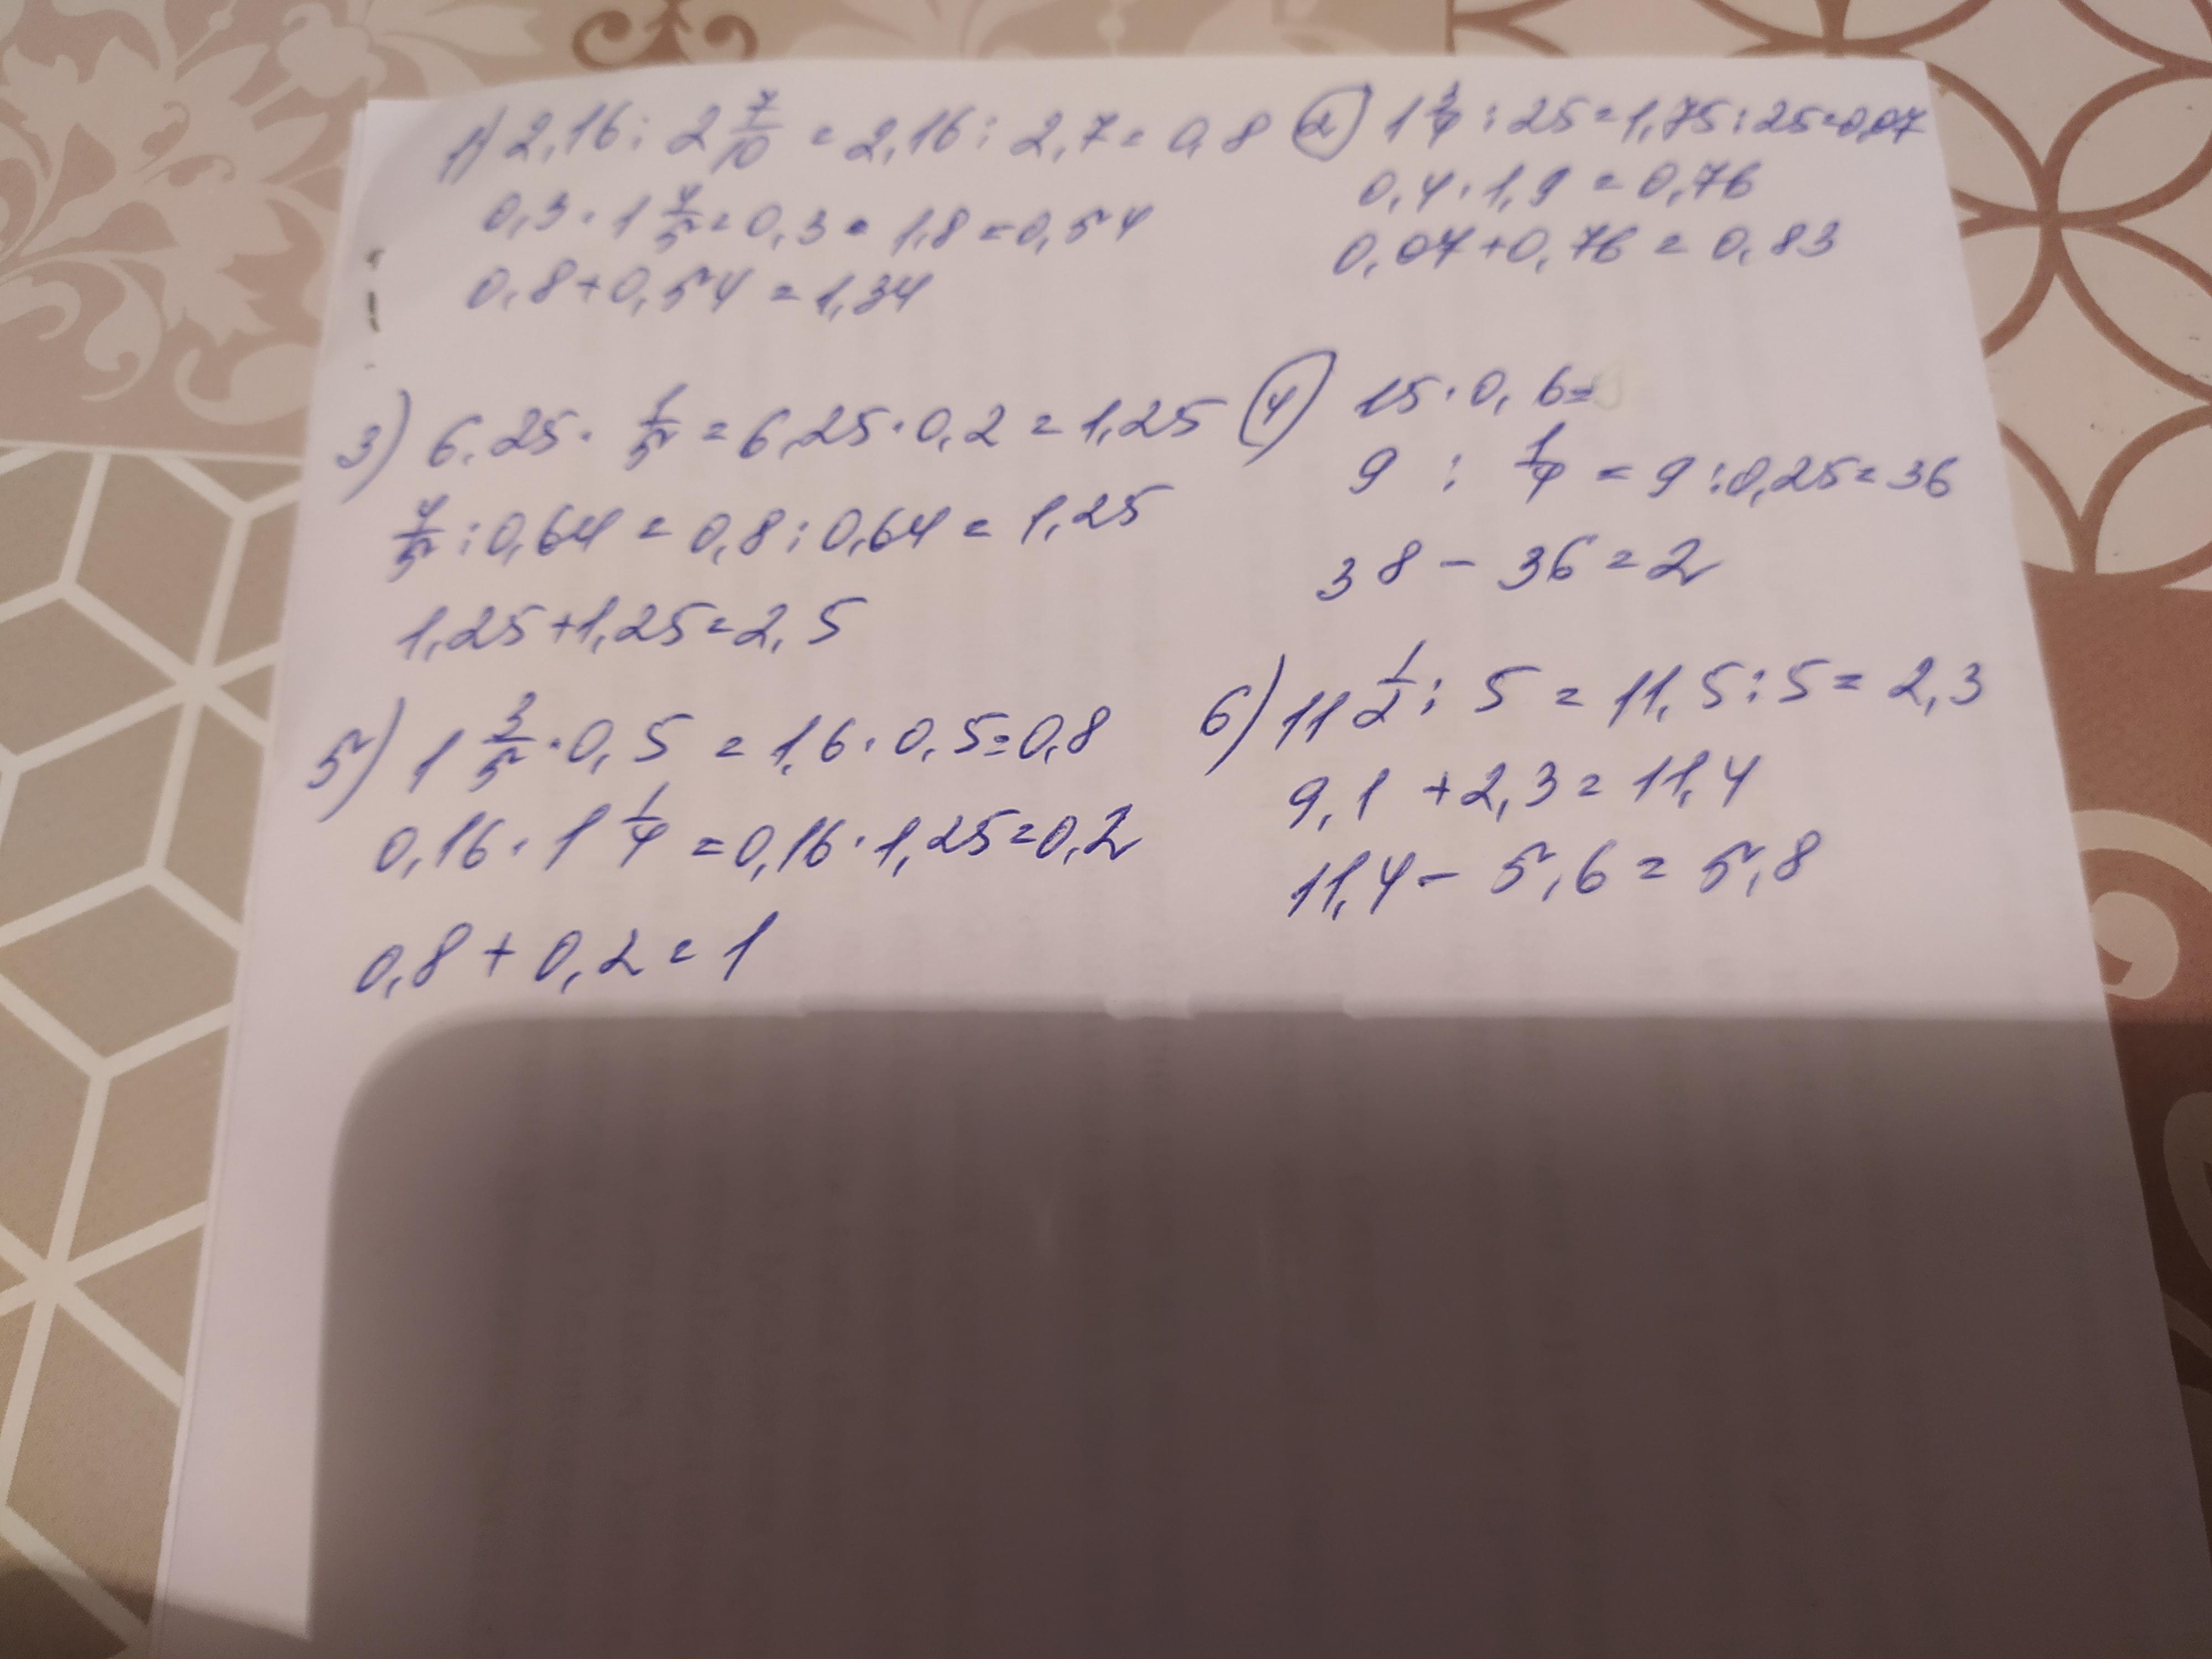 1) 2,16 : 2 7/10 = 2,16 : 2,7 = 0,8
0,3 · 1 4/5 = 0,3 · 1,8 = 0,54
0,8 + 0,54 = 1,34
2) 1 3/4 : 25 = 1,75 : 25 = 0,07
0,4 · 1,9 = 0,76
0,07 + 0,76 = 0,83
3) 6,25 · 1/5 = 6,25 · 0,2 = 1,25
4/5 : 0,64 = 0,8 : 0,64 = 1,25
1,25 + 1,25 = 2,5
4) 15 · 0,6 =
9 : 1/4 = 9 : 0,25 = 36
38 - 36 = 2
5) 1 3/5 · 0,5 = 1,6 · 0,5 = 0,8
0,16 · 1 1/4 = 0,16 · 1,25 = 0,2
0,8 + 0,2 = 1
6) 11 1/2 : 5 = 11,5 : 5 = 2,3
9,1 + 2,3 = 11,4
11,4 - 5,6 = 5,8